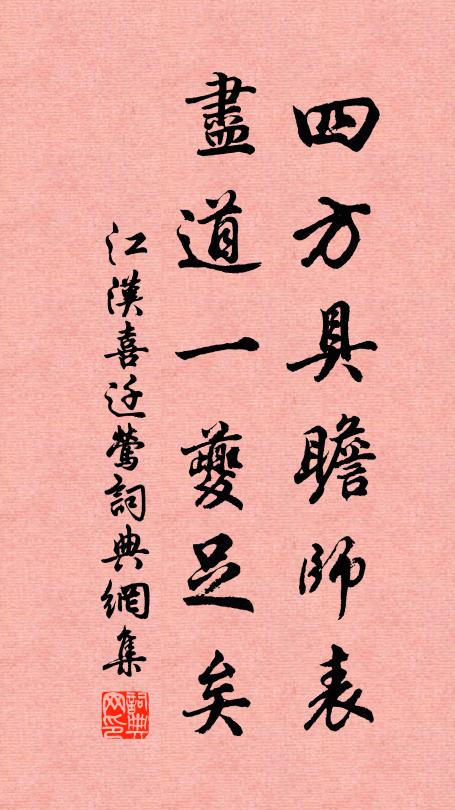 四方具瞻師表
盡道一夔足矣
江漢喜迁鶯詞典網集
詞典网印